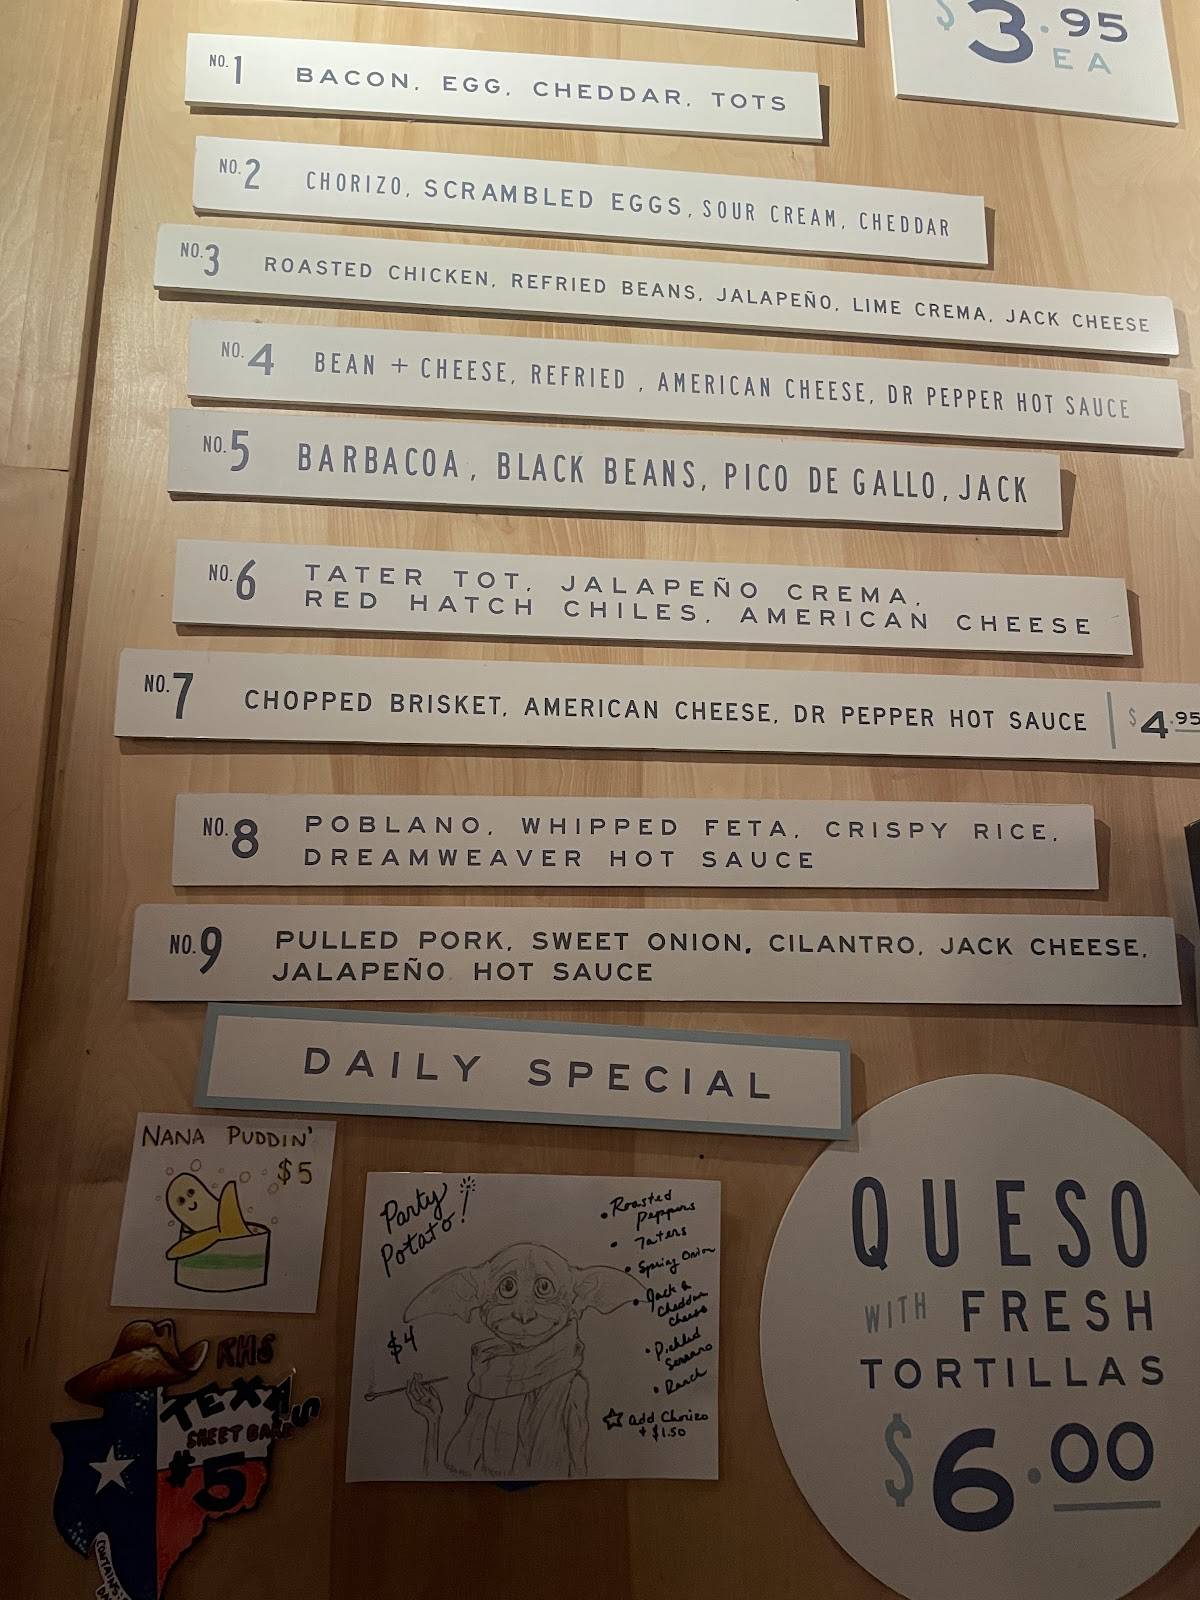 $3.95
EA
NO.1 BACON, EGG, CHEDDAR, TOTS
NO.2 CHORIZO, SCRAMBLED EGGS, SOUR CREAM, CHEDDAR
NO.3 ROASTED CHICKEN, REFRIED BEANS, JALAPEÑO, LIME CREMA, JACK CHEESE
NO.4 BEAN + CHEESE, REFRIED, AMERICAN CHEESE, DR PEPPER HOT SAUCE
NO.5 BARBACOA, BLACK BEANS, PICO DE GALLO, JACK
NO.6 TATER TOT, JALAPEÑO CREMA,
RED HATCH CHILES, AMERICAN CHEESE
NO.7 CHOPPED BRISKET, AMERICAN CHEESE, DR PEPPER HOT SAUCE | $4.95
NO.8 POBLANO, WHIPPED FETA, CRISPY RICE,
DREAMWEAVER HOT SAUCE
NO.9 PULLED PORK, SWEET ONION, CILANTRO, JACK CHEESE,
JALAPEÑO HOT SAUCE
DAILY SPECIAL
NANA PUDDIN'
$5
Party
Potato!
$4
• Roasted
Peppers
• Taters
• Spring Onion
• Jack &
Cheddar
Cheese
• Pickled
Serrano
• Ranch
☆ add Chorizo
+ $1.50
RHS
TEXAS
SHEET
5
CONTAINS
QUESO
WITH FRESH
TORTILLAS
$6.00